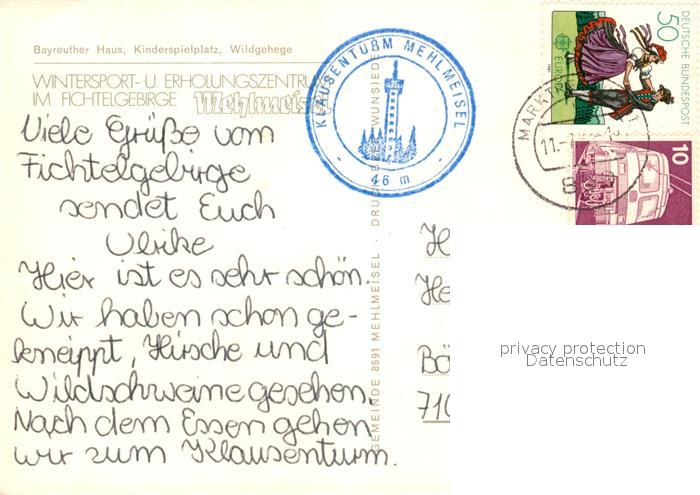 Bayreuther Haus, Kinderspielplatz, Wildgehege
WINTERSPORT- U. ERHOLUNGSZENTRUM
IM FICHTELGEBIRGE Mehlmeisel
Viele Grüße vom
Fichtelgebirge
sendet Euch
Ulrike
Hier ist es sehr schön.
Wir haben schon ge-
kneippt, Hirsche und
Wildschweine gesehen.
Nach dem Essen gehen
wir zum Klausenturm.
KLAUSENTURM MEHLMEISEL
- 46 m -
GEMEINDE 8591 MEHLMEISEL · DRUCK WUNSIEDEL
50
DEUTSCHE BUNDESPOST
EUROPA
10
MARKT
11.
8
H
He
Bö
710
privacy protection
Datenschutz